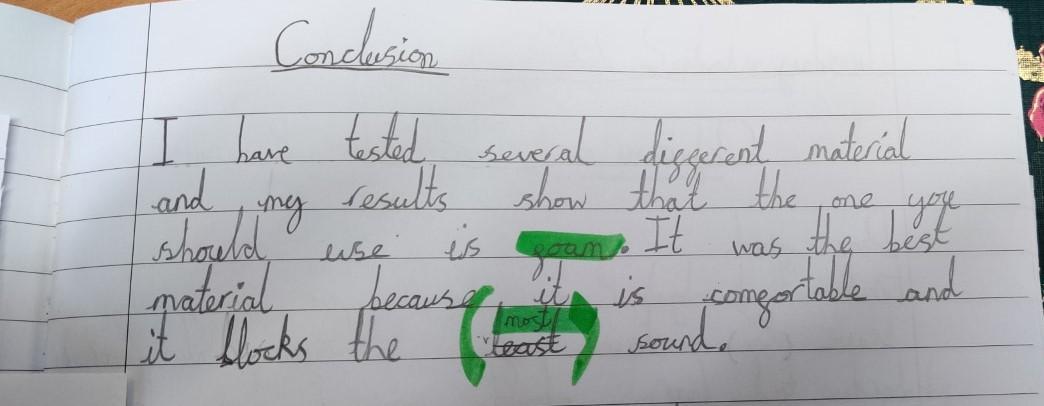 Conclusion
I have tested several different material
and my results show that the one you
should use is foam. It was the best
material because it is comfortable and
most
it blocks the (least) sound.